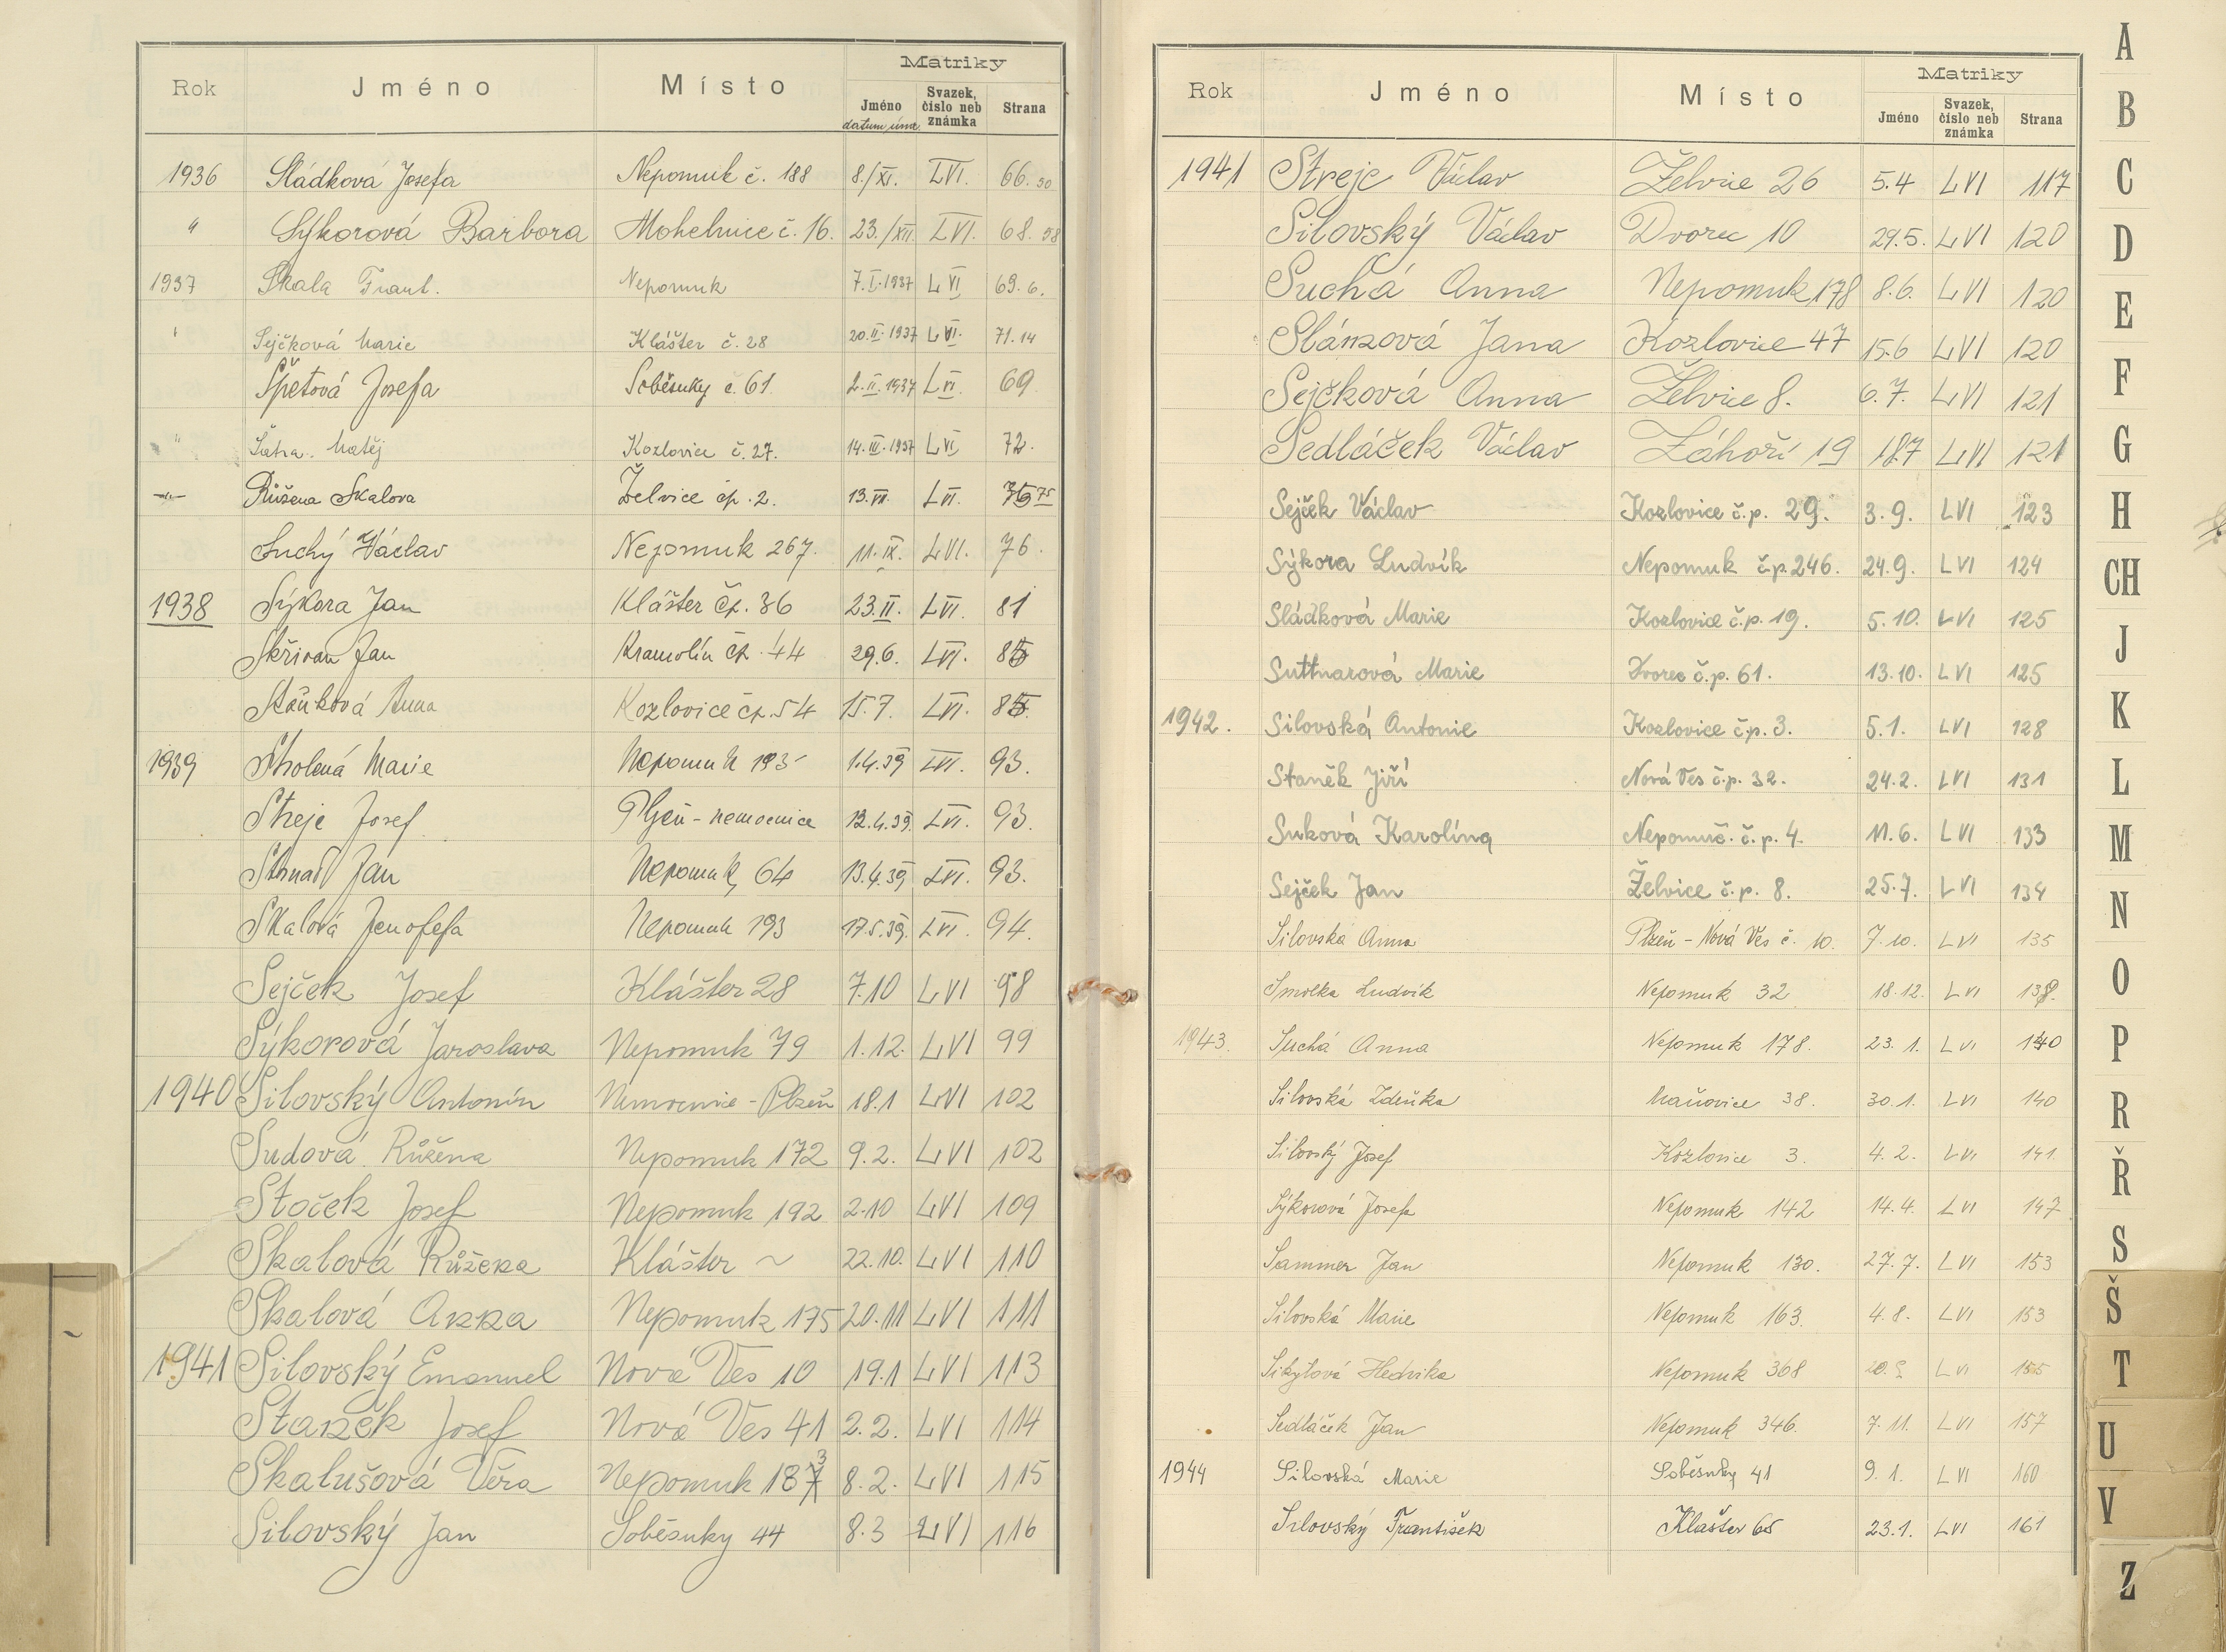 Rok Jméno Místo Matriky
Jméno datum úmr. Svazek, číslo neb známka Strana
1936 Sládková Josefa Nepomuk č. 188 8./XI. LVI. 66. 50
" Sýkorová Barbora Mohelnice č. 16. 23./XII. LVI. 68. 58
1937 Skala Frant. Nepomuk 7.I.1937 LVI 69. 6.
" Sejčková Marie Klášter č. 28 20.II.1937 LVI. 71. 14
Špetová Josefa Soběsuky č. 61. 2.II.1937 LVI. 69.
" Šatra Matěj Kozlovice č. 27. 14.III.1937 LVI 72.
—"— Růžena Skalova Želvice čp. 2. 13.VII. LVI. 75
Suchý Václav Nepomuk 267. 11.IX. LVI. 76.
1938 Sýkora Jan Klášter čp. 36 23.II. LVI. 81
Skřivan Jan Kramolín čp. 44 29.6. LVI. 85
Anna Kozlovice čp. 54 15.7. LVI. 85.
1939 Marie Nepomuk 193 1.4.39 LVI. 93.
Streje Josef Plzeň - nemocnice 12.4.39. LVI. 93.
Strnad Jan Nepomuk, 64 13.4.39 LVI. 93.
Skalová Jenofefa Nepomuk 193 17.5.39. LVI. 94.
Sejček Josef Klášter 28 7.10 LVI 98
Sýkorová Jaroslava Nepomuk 79 1.12. LVI 99
1940 Silovský Antonín Nemocnice - Plzeň 18.1 LVI 102
Sudová Růžena Nepomuk 172 9.2. LVI 102
Stoček Josef Nepomuk 192 2.10 LVI 109
Skalová Růžena Klášter ~ 22.10. LVI 110
Skalová Anna Nepomuk 175 20.11 LVI 111
1941 Silovský Emanuel Nová Ves 10 19.1 LVI 113
Staněk Josef Nová Ves 41 2.2. LVI 114
Skalušová Věra Nepomuk 183 8.2. LVI 115
Silovský Jan Soběsuky 44 8.3 LVI 116
Rok Jméno Místo Matriky
Jméno Svazek, číslo neb známka Strana
1941 Streje Václav Želvice 26 5.4 LVI 117
Silovský Václav Dvorec 10 29.5. LVI 120
Suchá Anna Nepomuk 178 8.6. LVI 120
Slánzová Jana Kozlovice 47 15.6 LVI 120
Sejčková Anna Želvice 8. 6.7. LVI 121
Sedláček Václav Záhoří 19 18.7 LVI 121
Sejček Václav Kozlovice č.p. 29. 3.9. LVI 123
Sýkora Ludvík Nepomuk č.p. 246. 24.9. LVI 124
Sládková Marie Kozlovice č.p. 19. 5.10. LVI 125
Suttnarová Marie Dvorec č.p. 61. 13.10. LVI 125
1942. Silovská Antonie Kozlovice č.p. 3. 5.1. LVI 128
Staněk Jiří Nová Ves č.p. 32. 24.2. LVI 131
Suková Karolína Nepomuc. č.p. 4. 11.6. LVI 133
Sejček Jan Želvice č.p. 8. 25.7. LVI 134
Silovská Anna Plzeň - Nová Ves č. 10. 7.10. LVI 135
Smolka Ludvík Nepomuk 32 18.12. LVI 138.
1943. Suchá Anna Nepomuk 178. 23.1. LVI 140
Silovská Zdeňka Maňovice 38. 30.1. LVI 140
Silovský Josef Kozlovice 3. 4.2. LVI 141
Sýkorová Josefa Nepomuk 142 14.4. LVI 147
Sammer Jan Nepomuk 130. 27.7. LVI 153
Silovská Marie Nepomuk 163. 4.8. LVI 153
Sikytová Hedvika Nepomuk 368 20. LVI 155
Sedláček Jan Nepomuk 346. 7.11. LVI 157
1944 Silovská Marie Soběsuky 41 9.1. LVI 160
Silovský František Klášter 65 23.1. LVI 161
A
B
C
D
E
F
G
H
CH
J
K
L
M
N
O
P
R
Ř
S
Š
T
U
V
Z